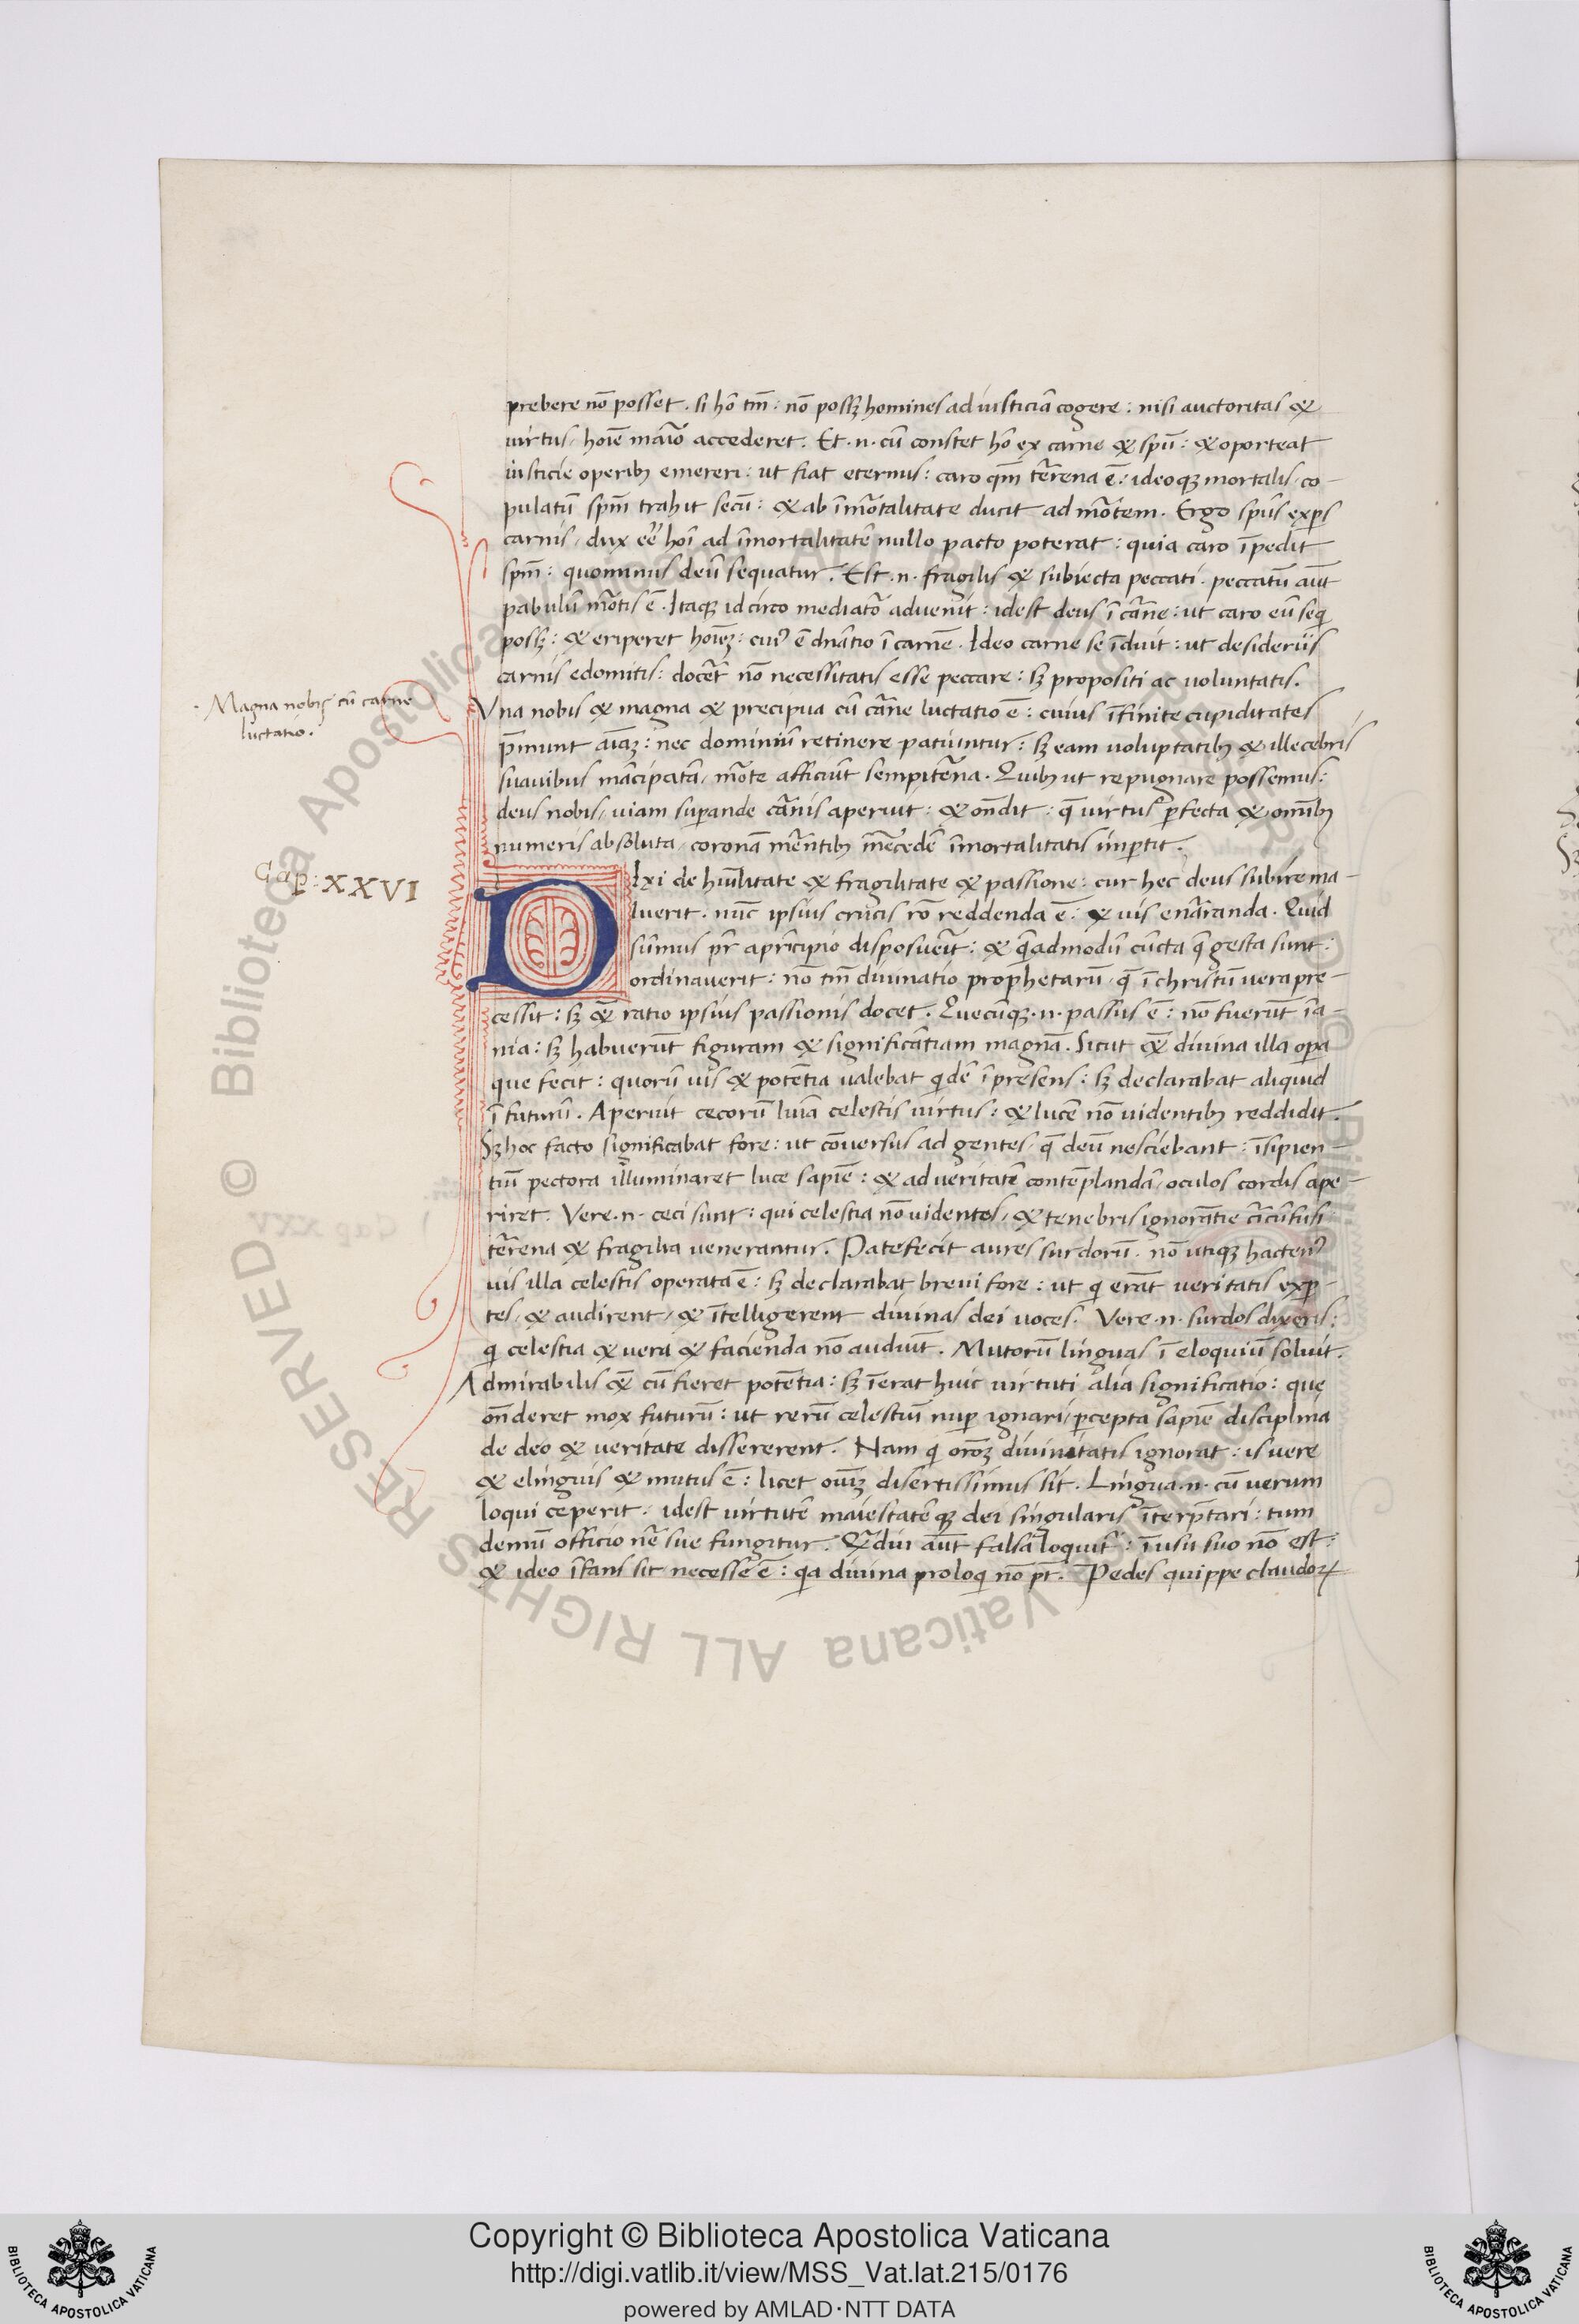 prebere nō posset. si hō tm̄: nō possꝫ homines ad iusticiā cogere: nisi auctoritas &
uirtus, hoīe maıō accederet. Et .n. cū constet hō ex carne & spū: & oporteat
iusticie operibꝫ emereri: ut fiat eternus: caro qm̄ t̄rena ē: ideoqꝫ mortalis, co-
pulatū spm̄ trahit secū: & ab īmōtalitate ducit ad mōtem. Ergo spūs exꝑs
carnis, dux eē hoī ad īmortalitatē nullo pacto poterat: quia caro īpedit
spm̄: quominus deū sequatur. Est .n. fragilis & subiecta peccati. peccatū aūt
pabulū mōtis ē. Itaqꝫ idcirco mediatō aduenit: idest deus ī cāne: ut caro eū seq̄
possꝫ: & eriperet hoīeꝫ: cuiꝰ ē dn̄atio ī carnē. Ideo carne se īduit: ut desideriis
carnis edomitis: docēt nō necessitatis esse peccare: sꝫ propositi ac uoluntatis.
Magna nobis cū carne
luctatio.
Vna nobis & magna & precipua cū cāne luctatio ē: cuius īfinite cupiditates
p̄munt aīaꝫ: nec dominiū retinere patiuntur: sꝫ eam uoluptatibꝫ & illecebris
suauibus mācipatā, mōte afficiūt sempit̄na. Quibꝫ ut repugnare possemus:
deus nobis, uiam suꝑande cānis aperuit: & on̄dit: q̄ uirtus ꝑfecta & om̄ibꝫ
numeris absoluta, coronā m̄entibꝫ m̄cedē īmortalitatis inꝑtit.
Cap: XXVI
DIxi de huīlitate & fragilitate & passione: cur hec deus subire ma-
luerit. nūc ipsius crucis rō reddenda ē: & uis enāranda. Quid
sūmus pr̄ apr̄icipio disposueīt: & q̄admodū cūcta q̄ gesta sunt:
ordinauerit: nō tm̄ diuinatio prophetarū, q̄ ī christū uera pre-
cessit: sꝫ &̄ ratio ipsius passionis docet. Quecūqꝫ .n. passus ē: nō fuerūt īa-
nia: sꝫ habuerūt figuram & significātiam magnā. Sicut &̄ diuina illa oꝑa
que fecit: quorū uis & potētia ualebat q̇dē ī presens: sꝫ declarabat aliquid
ī futurū. Aperuit cecorū luīa celestis uirtus: & lucē nō uidentibꝫ reddidit.
Sꝫ hoc facto significabat fore: ut cōuersus ad gentes, q̄ deū nesciebant: īsipien-
tiū pectora illuminaret luce sapiē: & ad ueritatē contēplandā, oculos cordis ape-
riret. Vere .n. ceci sunt: qui celestia nō uidentes, & tenebris ignorātie cīcūfusi
t̄rena & fragilia uenerantur. Patefecit aures surdorū. nō utiqꝫ hactenꝰ
uis illa celestis operata ē: sꝫ declarabat breui fore: ut q̇ erāt ueritatis exꝑ-
tes, & audirent, & ītelligerent diuinas dei uoces. Vere .n. surdos dixeris:
q̇ celestia & uera & facienda nō audiūt. Mutorū linguas ī eloquiū soluit.
Admirabilis &̄ cū fieret potētia: sꝫ īerat huic uirtuti alia significatio: que
on̄deret mox futurū: ut rerū celestiū nuꝑ ignari, ꝑcepta sapiē disciplina
de deo & ueritate dissererent. Nam q̇ orōꝫ diuinitatis ignorat: is uere
& elinguis & mutus ē: licet oīuꝫ disertissimus sit. Lingua .n. cū uerum
loqui ceperit: idest uirtutē maiestatēqꝫ dei singularis īterp̄tari: tum
demū officio nē sue fungitur. Q̄diu aūt falsa loquit̄: ī usu suo nō est:
& ideo īfans sit necesse ē: qa diuina proloq̇ nō pt̄. Pedes quippe claudoꝝ
Copyright © Biblioteca Apostolica Vaticana
http://digi.vatlib.it/view/MSS_Vat.lat.215/0176
powered by AMLAD·NTT DATA
BIBLIOTECA APOSTOLICA VATICANA
BIBLIOTECA APOSTOLICA VATICANA